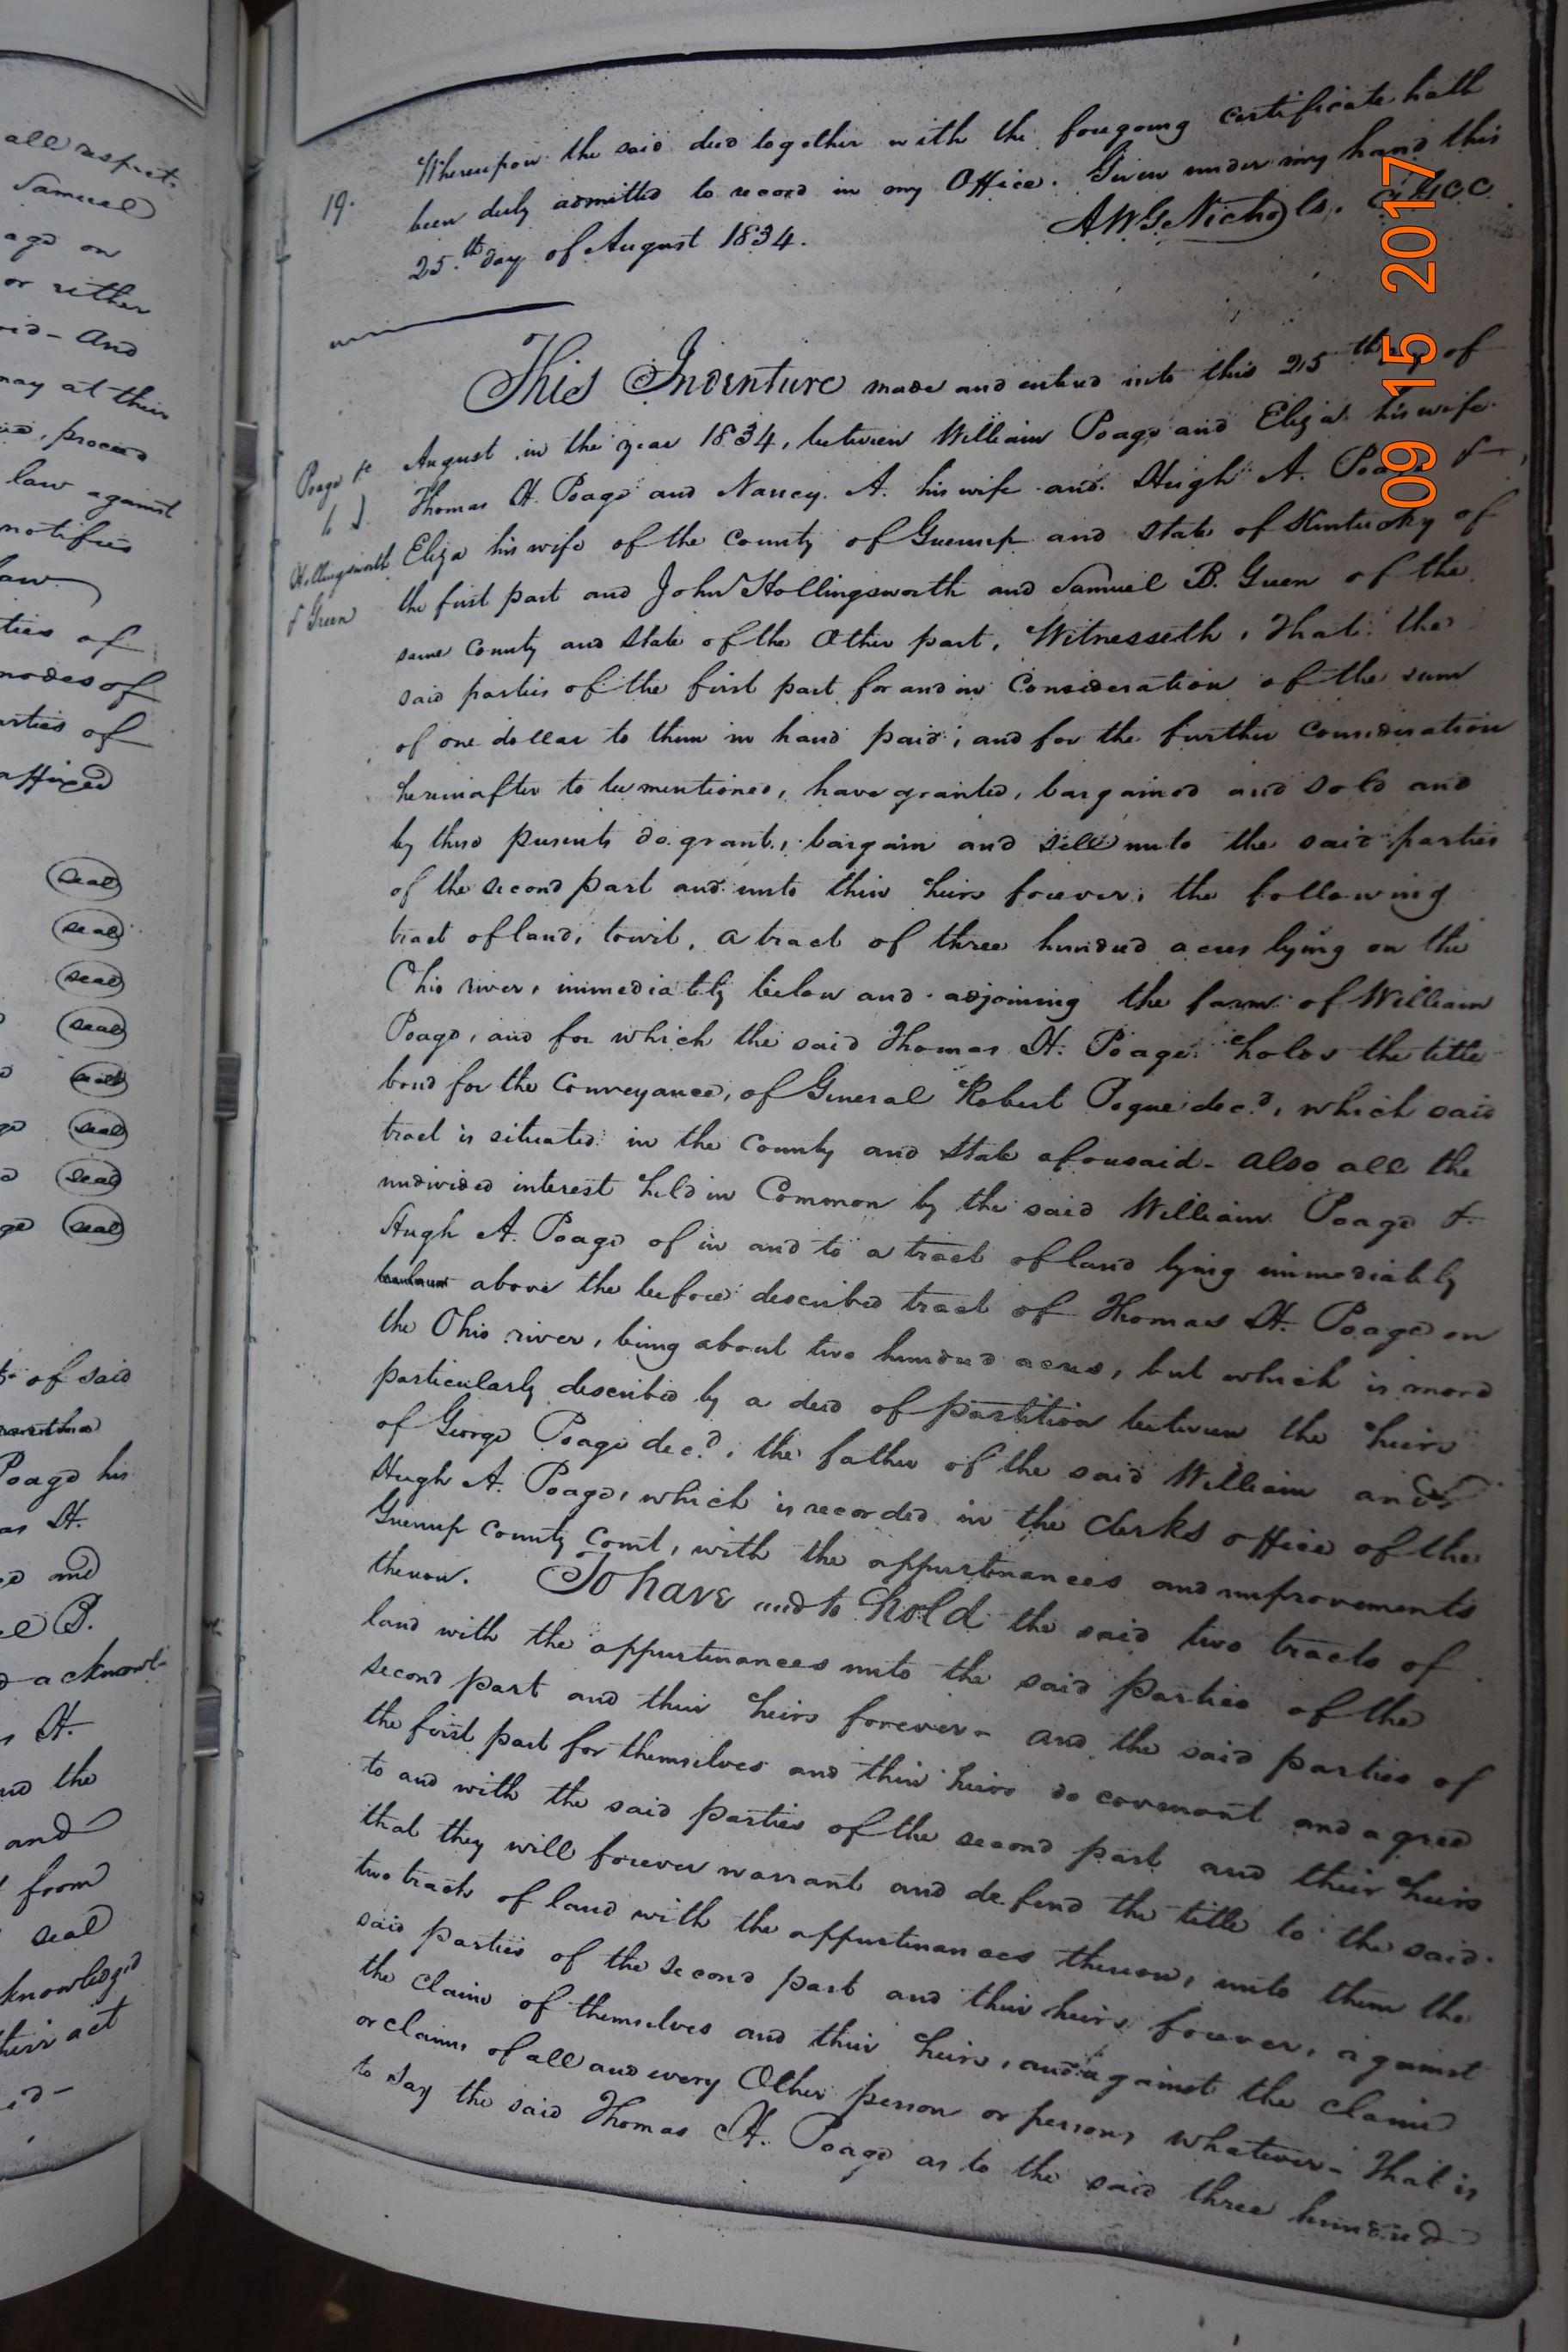 all respects
Samuel
ago on
or either
id - And
may at their
proceed
law against
notifies
law
ties of
modes of
arties of
affixed
seal
seal
seal
seal
seal
seal
seal
seal
of said
Poage his
as H.
and
el B.
acknowl-
H.
and the
and
from
seal
knowledged
their act
19.
Whereupon the said deed together with the foregoing certificate hath
been duly admitted to record in my Office. Given under my hand this
25.th day of August 1834.
AWG Nichols. C.G.C.C.
This Indenture made and entered into this 25th of
August in the year 1834, between William Poage and Eliza. his wife
Thomas H. Poage and Nancy. A. his wife and Hugh A. Poage &
Eliza his wife of the County of Greenup and State of Kentucky of
the first part and John Hollingsworth and Samuel B. Green of the
same County and State of the Other part, Witnesseth, That the
said parties of the first part for and in Consideration of the sum
of one dollar to them in hand paid; and for the further Consideration
hereinafter to be mentioned, have granted, bargained and sold and
by these presents do grant, bargain and sell unto the said parties
of the second part and unto their heirs forever; the following
tract of land, towit, a tract of three hundred acres lying on the
Ohio river, immediately below and adjoining the farm of William
Poage, and for which the said Thomas H. Poage holds the title
bond for the Conveyance, of General Robert Pogue dec.d, which said
tract is situated in the County and State aforesaid - also all the
undivided interest held in Common by the said William Poage &
Hugh A. Poage of in and to a tract of land lying immediately
above the before described tract of Thomas H. Poage on
the Ohio river, being about two hundred acres, but which is more
particularly described by a deed of partition between the heirs
of George Poage dec.d, the father of the said William and
Hugh A. Poage, which is recorded in the clerks office of the
Greenup County Court, with the appurtenances and improvements
thereon. To have and to hold the said two tracts of
land with the appurtenances unto the said parties of the
second part and their heirs forever - and the said parties of
the first part for themselves and their heirs do covenant and agree
to and with the said parties of the second part and their heirs
that they will forever warrant and defend the title to the said
two tracts of land with the appurtenances thereon, unto them the
said parties of the second part and their heirs forever, against
the claim of themselves and their heirs, and against the claim
or claims of all and every Other person or persons whatever - That is
to say the said Thomas H. Poage as to the said three hundred
Poage &c
to } D.
Hollingsworth
& Green
09 15 2017